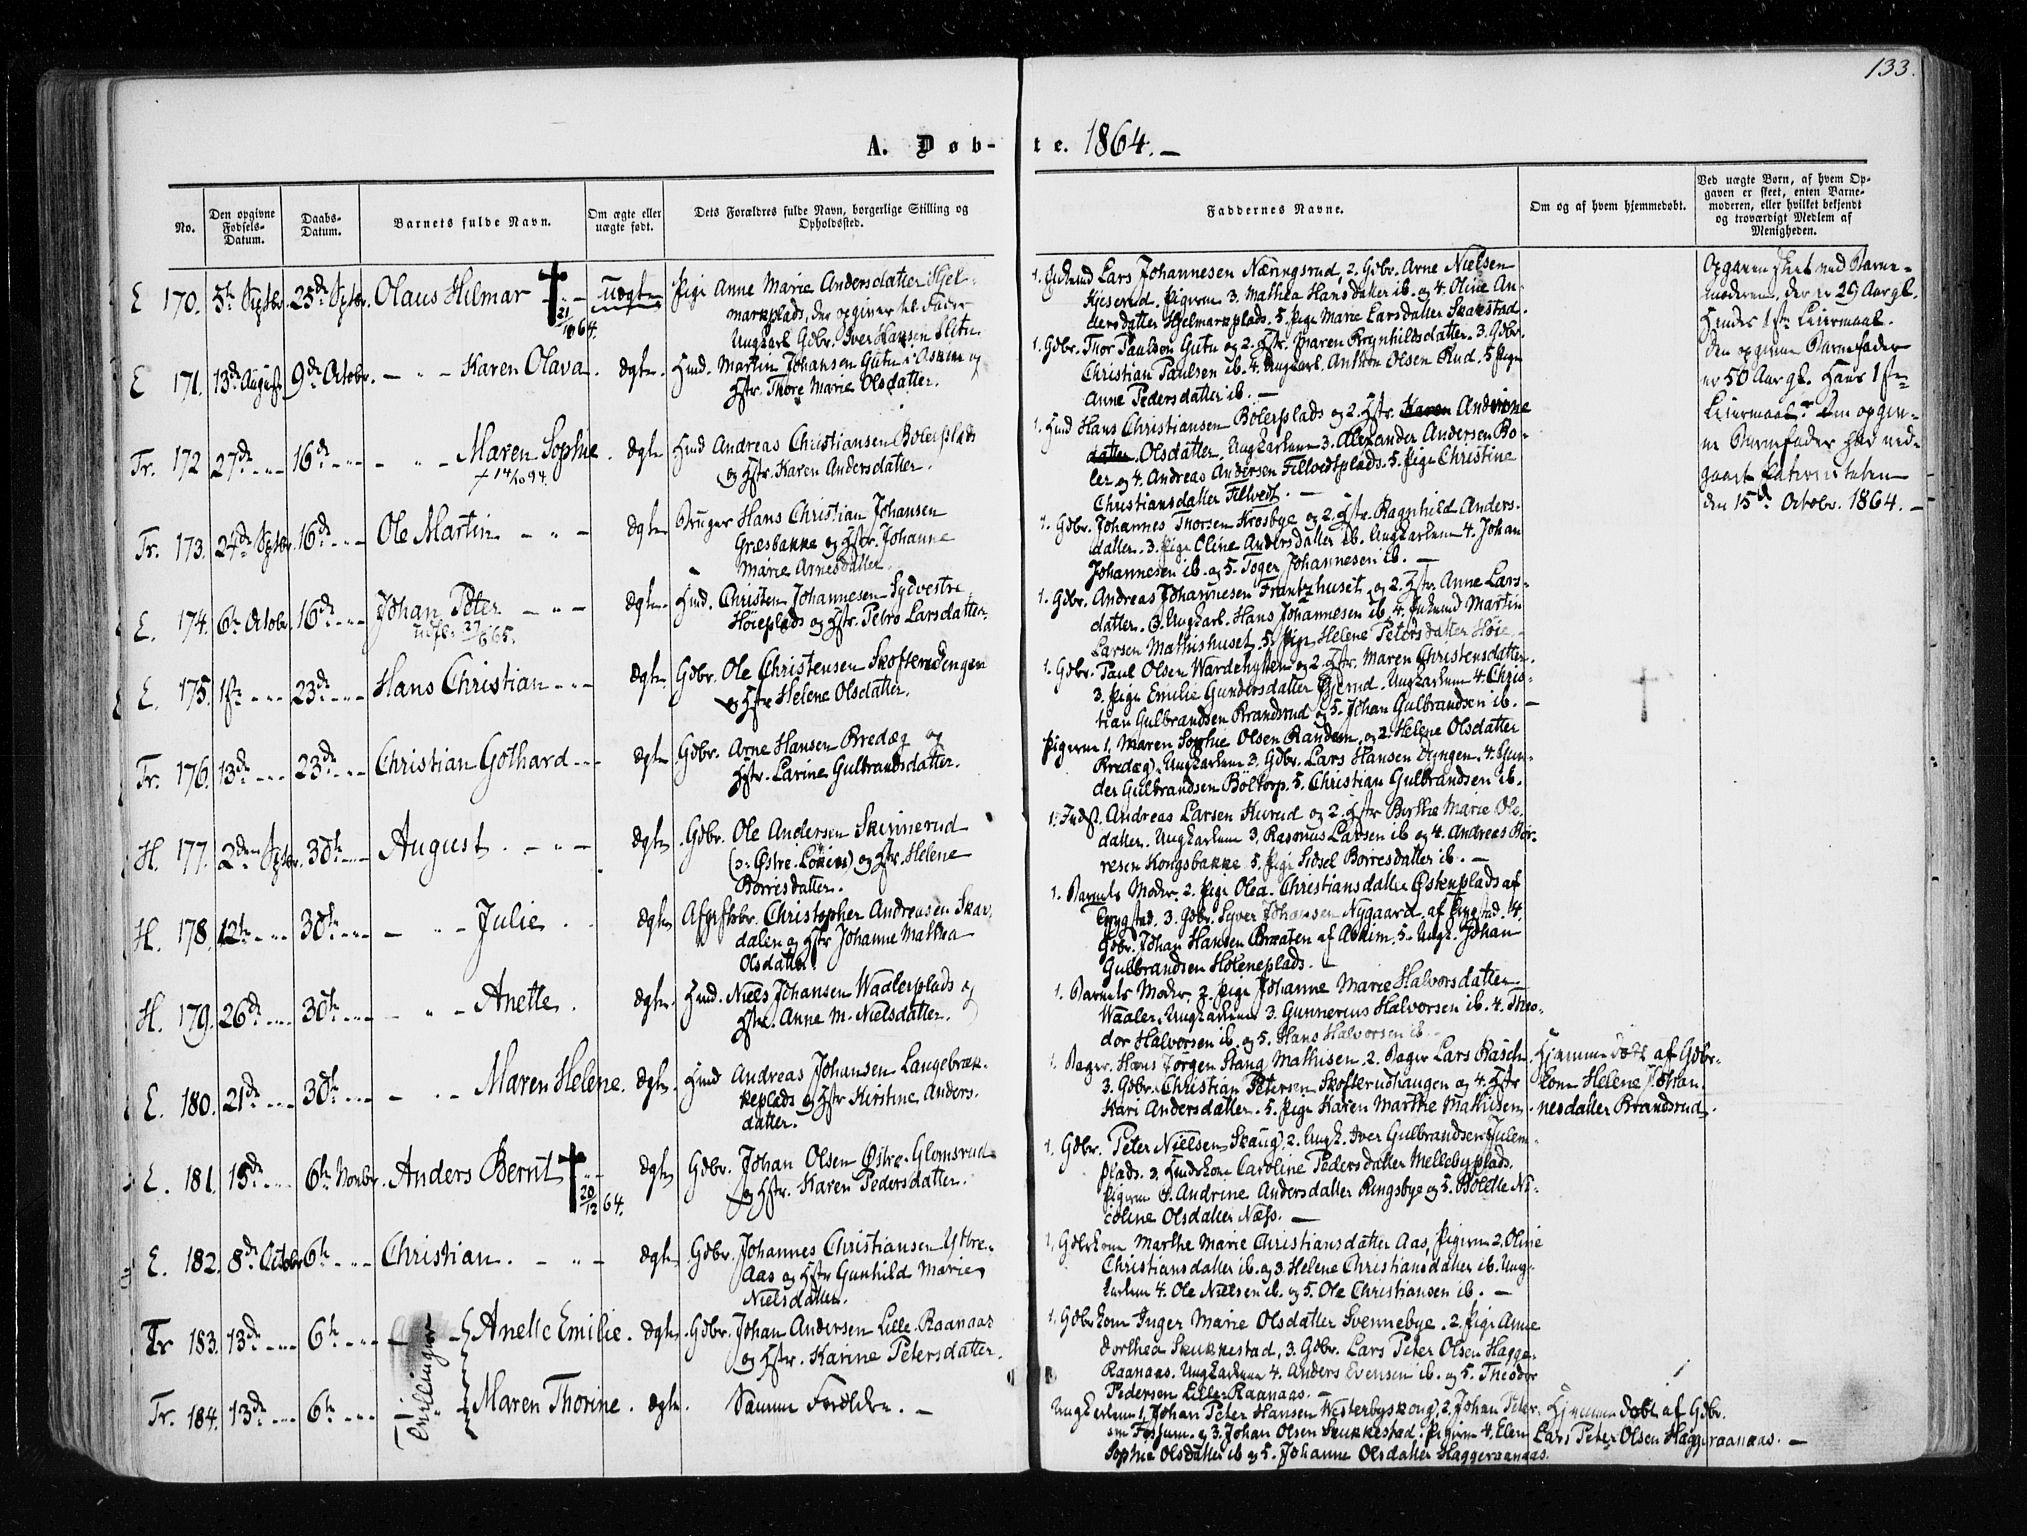 133.
A. Døb-
te. 1864.
No.
Den opgivne
Fødsels-
Datum.
Daabs-
Datum.
Barnets fulde Navn.
Om ægte eller
uægte født.
Dets Forældres fulde Navn, borgerlige Stilling og
Opholdssted.
Faddernes Navne.
Om og af hvem hjemmedøbt.
Ved uægte Børn, af hvem Op-
gaven er skeet, enten Barne-
moderen, eller hvilket bekjendt
og troværdigt Medlem af
Menigheden.
E 170. 5te Septbr. 25de Septbr. Olaus Hilmar Uægte Pige Anne Marie Andersdatter Hjel-
21/10 64.
markplads, der opgiver til Fader
Ungkarl Gdbr. Iver Hansen Slitu.
1. Indrest Lars Johannesen Næringsrud, 2. Gdbr. Arne Nielsen
Kjeserud. Pigerne 3. Mathea Hansdatter ib. og 4. Oline An-
dersdatter Hjelmarkplads. 5. Pige Marie Larsdatter Skakstad.
Opgaven skeet ved Barne-
moderen, der er 29 Aar gl.
Hendes 1ste Leiermaal.
Den opgivne Barnefader
er 50 Aar gl. Hans 1ste
Leiermaal. Den opgiv-
ne Barnefader har ved-
gaaet Paterniteten
den 15de Octobr. 1864.
E 171. 13de August 9de Octobr. Karen Olava. Ægte. Hmd. Martin Johansen Gutu i Askim og
Hstr. Thore Marie Olsdatter.
1. Gdbr. Thor Paulson Gutu og 2. Hstr. Maren Brynhildsdatter. 3. Gdbr.
Christian Paulsen ib. 4. Ungkarl. Anthon Olsen Rud. 5. Pige
Anne Pedersdatter ib.
Tr. 172 27de 16de Maren Sophie. Ægte Hmd Andreas Christiansen Bølerplads
† 14/10 94.
og Hstr. Karen Andersdatter.
1. Hmd Hans Christiansen Bølerplads og 2. Hstr. Karen Andrine
datter. Olsdatter. Ungkarlene 3. Alexander Andersen Bø-
ler og 4. Andreas Andersen Filtvedtplads. 5. Pige Christine
Christiansdatter Filtvedt.
Tr. 173. 24de Septbr. 16de Ole Martin Ægte Bruger Hans Christian Johansen
Græsbakke og Hstr. Johanne
Marie Arnesdatter.
1. Gdbr. Johannes Thorsen Krosbye og 2. Hstr. Ragnhild Anders-
datter. 3. Pige Oline Andersdatter ib. Ungkarlene 4. Johan
Johannesen ib. og 5. Toger Johannesen ib.
E. 174. 6te Octobr. 16de Johan Peter Ægte. Hmd. Christen Johannesen Sydvestre
Høieplads og Hstr. Petro Larsdatter.
1. Gdbr. Andreas Johannesen Frantzhuset, og 2. Hstr. Anne Lars-
datter. 3. Ungkarl. Hans Johannesen ib. 4. Martin
Larsen Mathishuset. 5. Pige Helene Petersdatter Høie.
E. 175. 1ste 23de Hans Christian Ægte. Gdbr. Ole Christensen Skofterudengen
og Hstr Helene Olsdatter.
1. Gdbr. Paul Olsen Wardehytten og 2. Hstr. Maren Christensdatter.
3. Pige Emilie Gundersdatter Gjerud. Ungkarlene 4. Chris-
tian Gulbrandsen Brandsrud og 5. Johan Gulbrandsen ib.
Tr. 176. 13de 23de Christian Gothard Ægte Gdbr. Arne Hansen Bredæg og
Hstr. Larine Gulbrandsdatter.
Pigerne 1. Maren Sophie Olsen Randem, og 2. Helene Olsdatter
Bredæg. Ungkarlene 3. Gdbr. Lars Hansen Lyngen. 4. Gun-
der Gulbrandsen Boltorp. 5. Christian Gulbrandsen ib.
H. 177. 2den Septbr. 30te August. Ægte Gdbr. Ole Andersen Skinnerud
(ɔ: Østre Løken) og Hstr. Helene
Borresdatter.
1. Indst. Andreas Larsen Kurud og 2. Hstr Berthe Marie Ols-
datter. Ungkarlene 3. Rasmus Larsen ib og 4. Andreas Bor-
resen Kongsbakke 5. Pige Sidsel Borresdatter ib.
H. 178. 12te 30te Julie. Ægte Christopher Andreasen Skar-
dalen og Hstr Johanne Mathea
Olsdatter.
1. Barnets Moder. 2. Pige Olea Christiansdatter Østenplads af
3. Gdbr. Syver Johansen Nygaard, af 4.
Gdbr. Johan Hansen Braaten af Askim. 5. Ungk. Johan
Gulbrandsen Holeneplads.
H. 179. 26de 30te Anette. Ægte. Hmd. Niels Johansen Waalerplads og
Hstr. Anne M. Nielsdatter.
1. Barnets Moder. 2. Pige Johanne Marie Halvorsdatter
Waaler. Ungkarlene 3. Gunnerius Halvorsen ib. 4. Theo-
dor Halvorsen ib. og 5. Hans Halvorsen ib.
E. 180. 21de 30te Maren Helene. Ægte. Hmd Andreas Johansen Langebræk-
keplads og Hstr Kirstine Anders-
datter.
1. Bager. Hans Jørgen Stang Mathisen. 2. Bager Lars Basch.
3. Gdbr. Christian Petersen Skofterudhaugen og 4. Hstr
Kari Andersdatter. 5. Pige Karen Marthe Mathisen.
Hjemmedøbt af Gdbr-
kone Helene Johan-
nesdatter Brandsrud.
E. 181. 15de 6te Novbr. Anders Bernt Ægte Gdbr. Johan Olsen Østre Glomsrud
20/12 64.
og Hstr. Karen Pedersdatter.
1. Gdbr. Peter Nielsen Skaug. 2. Ungk. Iver Gulbrandsen Julem-
plads. 3. Hmdskone Caroline Pedersdatter Mellebyplads.
Pigerne 4. Andrine Andersdatter Ringsbye og 5. Bolette Ni-
coline Olsdatter Næss.
E. 182. 8de Octobr 6te Christian. Ægte Gdbr. Johannes Christiansen Ytre-
Aas og Hstr Gunhild Marie
Nielsdatter.
1. Gdbrkone Marthe Marie Christiansdatter Aas, Pigerne 2. Oline
Christiansdatter ib. og 3. Helene Christiansdatter ib. Ung-
karlene 4. Ole Nielsen ib. og 5. Ole Christiansen ib.
Tr 183. 13de 6te Tvillinger Anette Emilie. Ægte Gdbr. Johan Andersen Lille Raanaas
og Hstr. Karine Petersdatter.
1. Gdbrkone Inger Marie Olsdatter Svennebye. 2. Pige Anne
Dorthea Skukkestad, 3. Gdbr. Lars Peter Olsen Hagge-
Raanaas. Ungkarlene 4. Anders Evensen ib. og 5. Theodor
Pedersen Lille Raanaas.
Tr. 184. 13de 6te Maren Thorine. Ægte. Samme Forældre.
Ungkarlene 1. Johan Peter Hansen Westerbyskoug, 2. Johan Peter-
sen Fossum og 3. Johan Olsen Skukkestad. Pigerne 4. Elen
Sophie Olsdatter ib og 5. Johanne Olsdatter Haggeraanaas.
Hjemmedøbt af Gdbr.
Lars Peter Olsen Haggeraanaas.